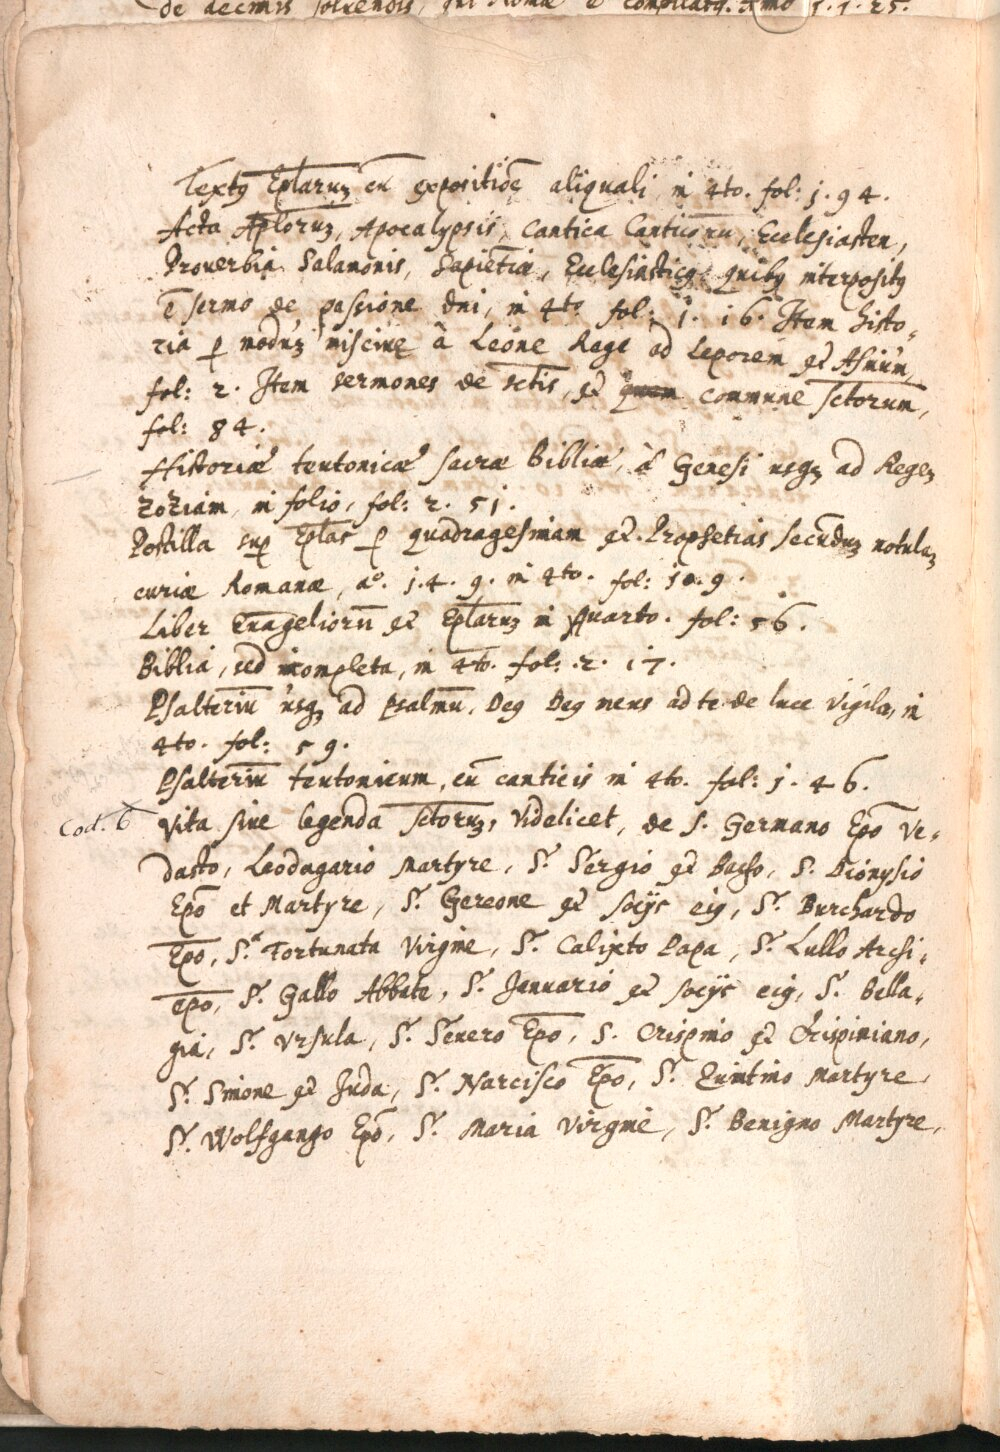 de decimis soluendis, qui Romæ ē compilatq. Aⁿno 1.1.25.
Textꝯ Ep̄larūʒ cū expositiōe aliquali, in 4to. fol: 1.94.
Acta Ap̄lorūʒ, Apocalypsis, Cantica Canticorū, Ecclesiasten,
Prouerbia Salamonis, Sapiētiæ, Ecclesiasticꝯ quibꝯ interpositꝯ
ē sermo de passione dn̄i, in 4to. fol: 1.16. Item histo-
ria ꝑ modūʒ à Leone Rege ad Leporem et Asinum,
fol: 2. Item sermones de sctīs, et commune sctorum,
fol: 84.
Historiæ teutonicæ sacræ Bibliæ, à Genesi usqʒ ad Regeʒ
in folio, fol: 2.51.
Postilla suꝑ Ep̄las ꝑ quadragesimam et Prophetias secūdūʒ notulaʒ
curiæ Romanæ, aº. 1.4.9. in 4to. fol:
Liber Euāgeliorū et Ep̄larūʒ in Quarto. fol: 56.
Biblia, sed incompleta, in 4to. fol: 2.17.
Psalteriū usqʒ ad psalmū, Deꝯ Deꝯ meus ad te de luce vigila, in
4to. fol: 59.
Psalteriū teutonicum, cū canticis in 4to. fol: 1.46.
Cod. 6
Vita siue legenda sctorūʒ, Videlicet, de S. Germano Ep̄o Ve-
dasto, Leodagario Martyre, S. Sergio et Bacho, S. Dionysio
Ep̄o et Martyre, S. Gereone et socijs eiꝯ, S. Burchardo
Ep̄o, S.ᵃ Fortunata Virgine, S. Calixto Papa, S. Lullo Archi-
ep̄o, S. Gallo Abbate, S. Januario et socijs eiꝯ, S. Bella-
gia, S. Vrsula, S. Seuero Ep̄o, S. Crispino et Crispiniano,
S. Simone et Juda, S. Narcisco Ep̄o, S. Quintino Martyre,
S. Wolfgango Ep̄o, S. Maria Virgine, S. Benigno Martyre,